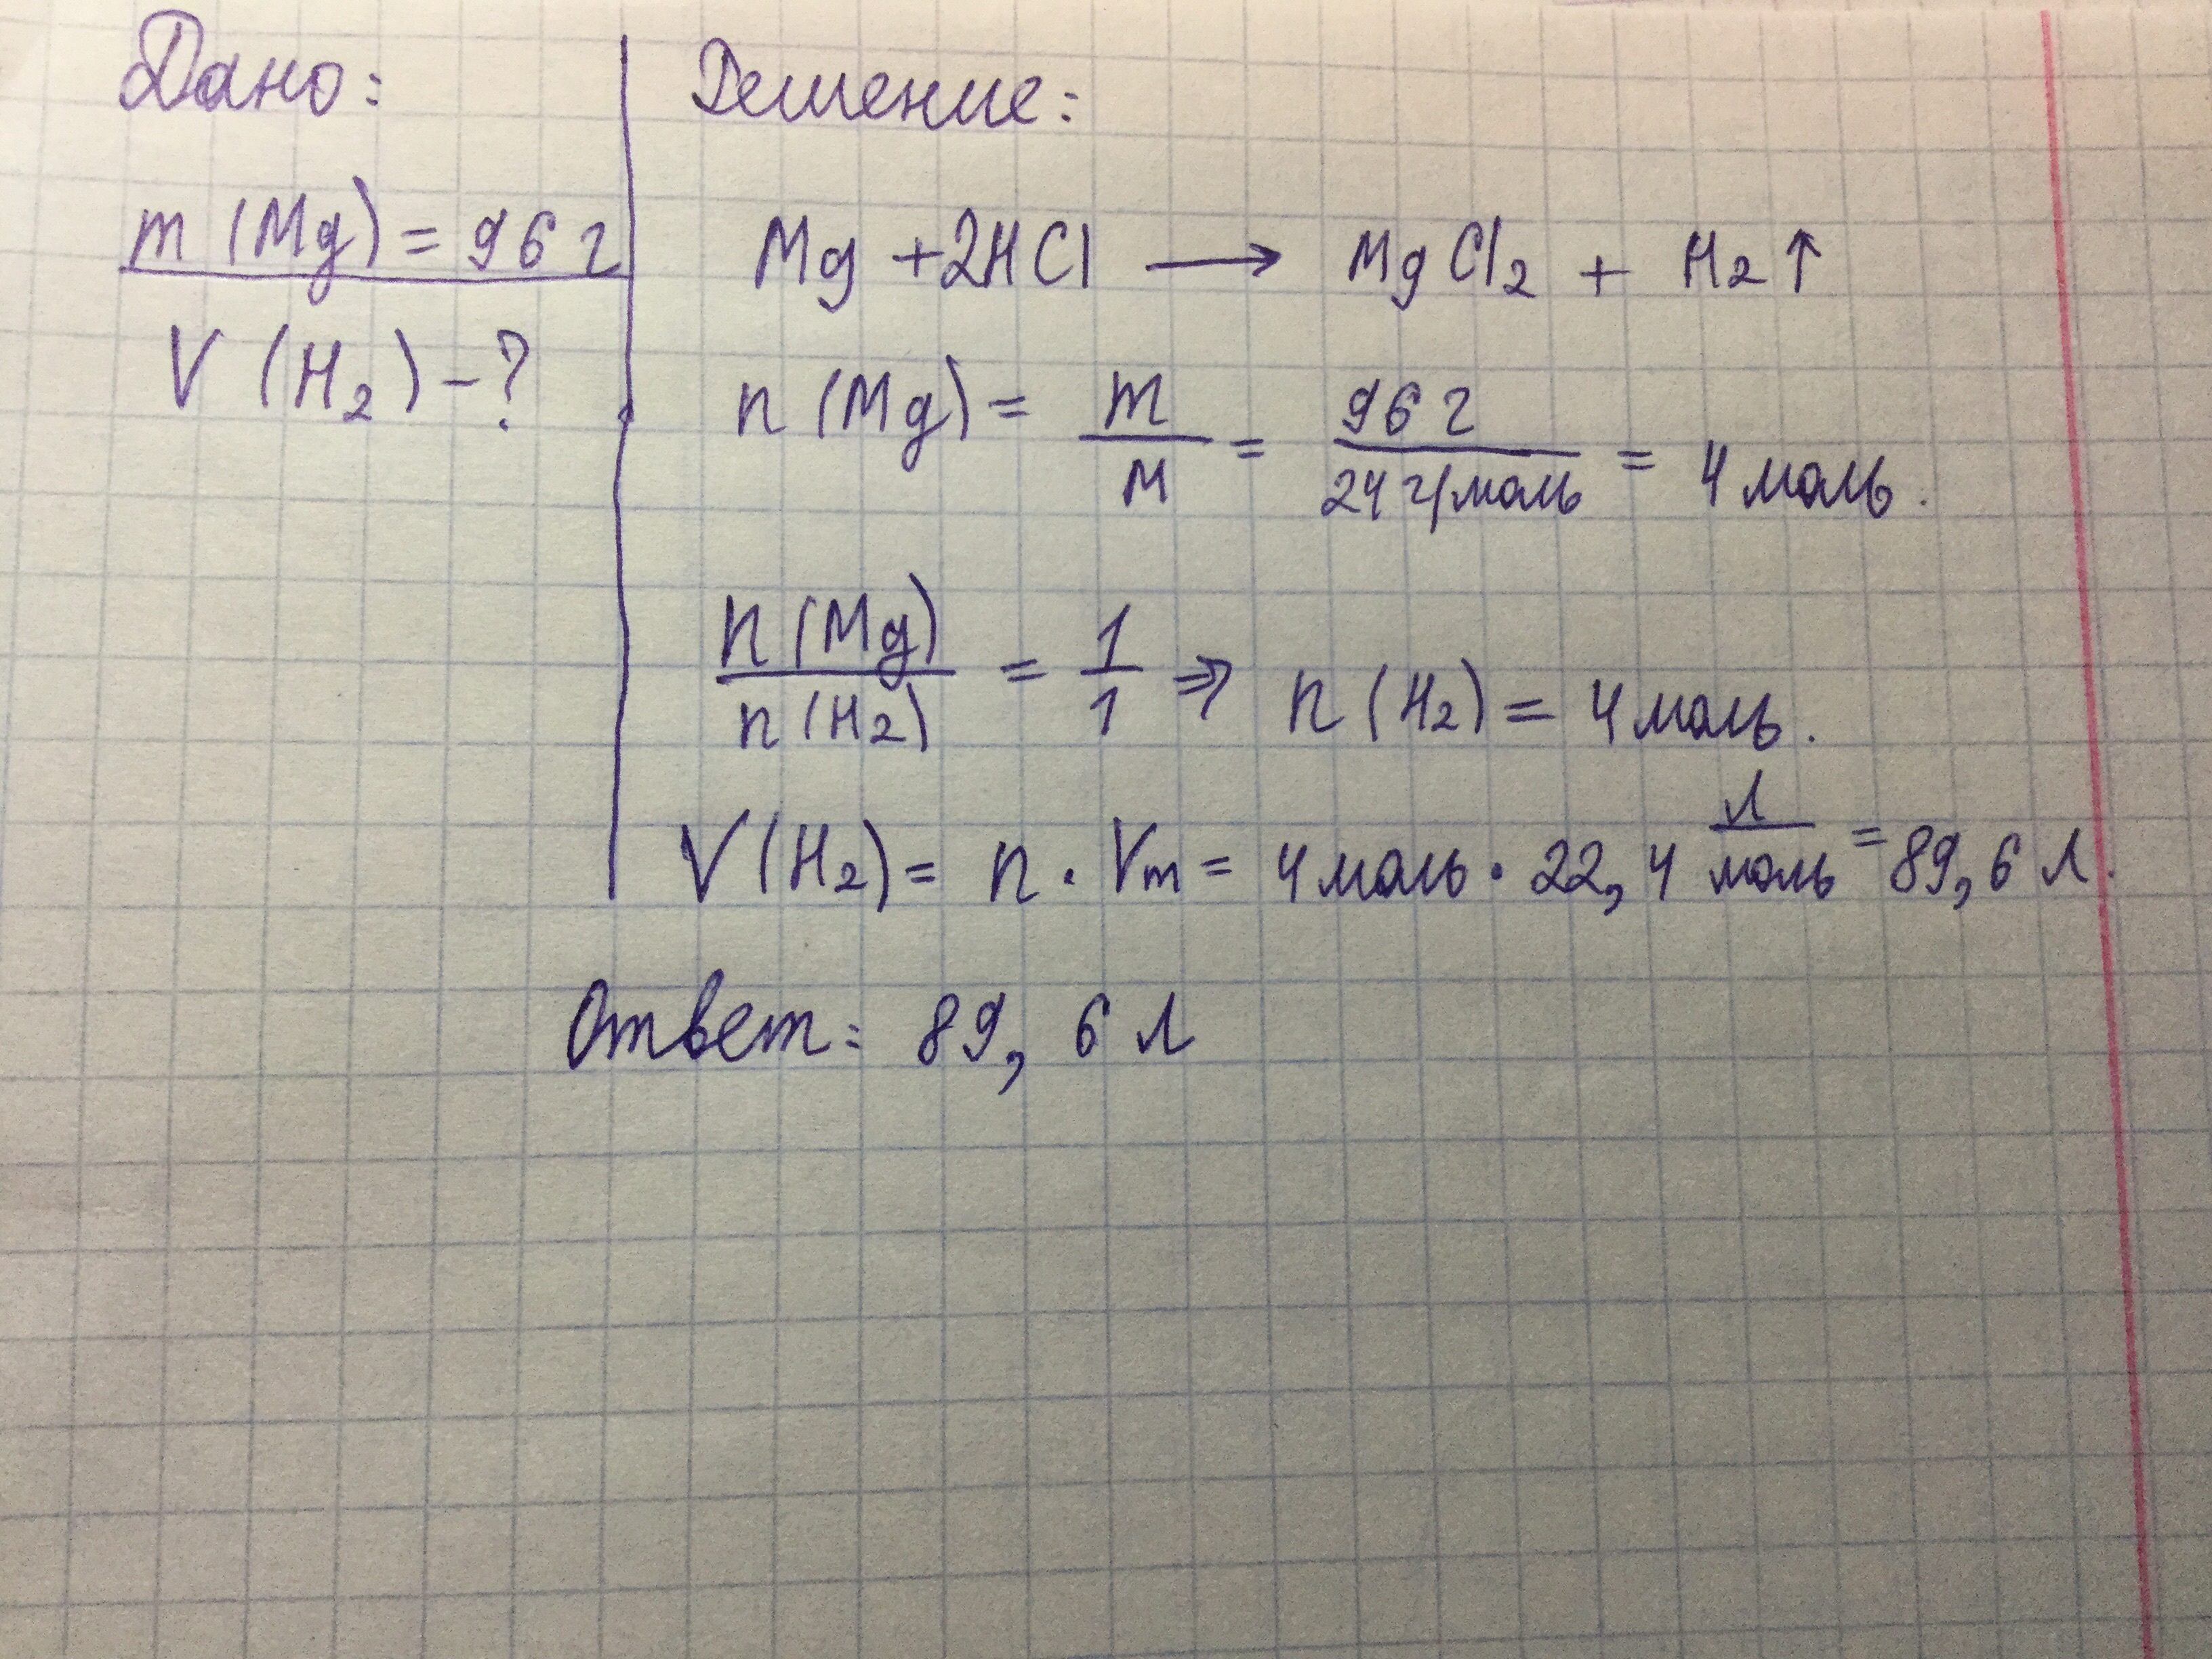 Дано:
m (Mg) = 96 г
V (H₂) - ?
Решение:
Mg + 2HCl ⟶ MgCl₂ + H₂↑
n (Mg) = m/M = 96 г / 24 г/моль = 4 моль.
n (Mg) / n (H₂) = 1/1 ⇒ n (H₂) = 4 моль.
V (H₂) = n · Vm = 4 моль · 22,4 л/моль = 89,6 л.
Ответ: 89,6 л